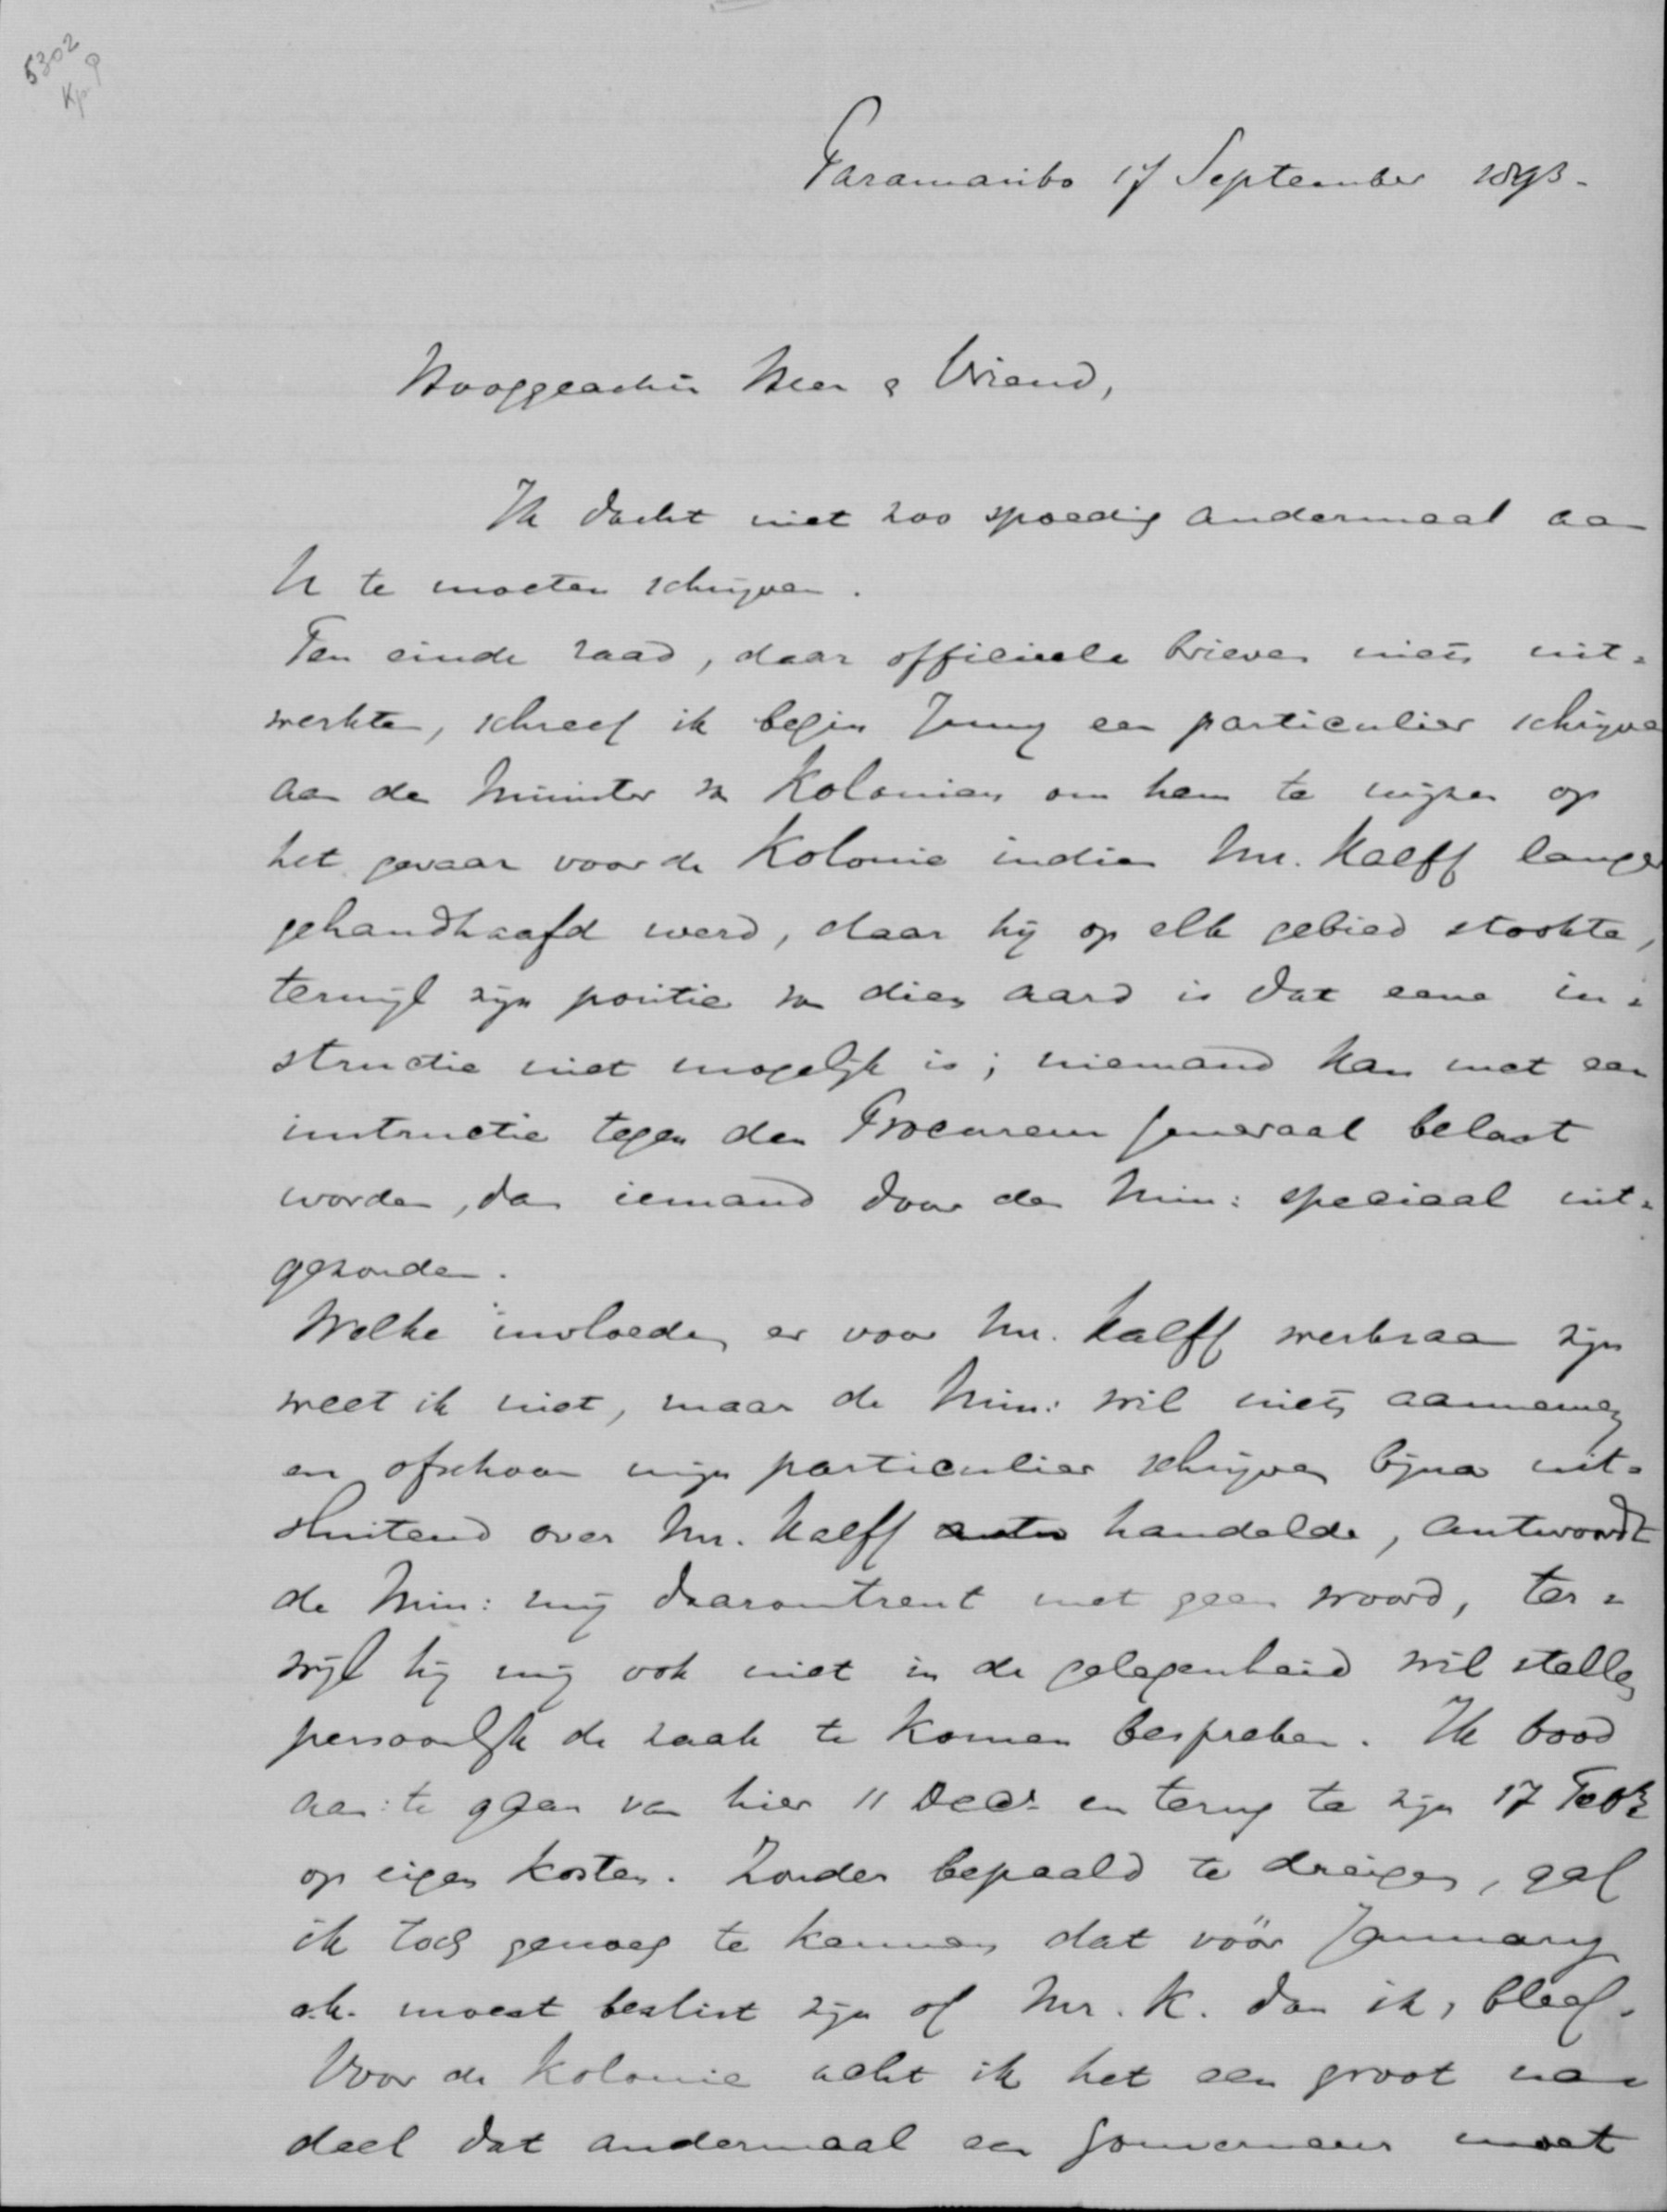 5302
Kp 9
Paramaribo 17 September 1893.
Hooggeachte Heer & Vriend,
Ik dacht niet zoo spoedig andermaal aan
U te moeten schrijven.
Ten einde raad, daar officieele brieven niets uit=
werkten, schreef ik begin Juny een particulier schrijven
aan den Minister v Kolonien om hem te wijzen op
het gevaar voor de Kolonie indien Mr. Kalff langer
gehandhaafd werd, daar hij op elk gebied stookte,
terwijl zijn positie van dien aard is dat eene in=
structie niet mogelijk is; niemand kan met een
instructie tegen den Procureur Generaal belast
worden, dan iemand door den Min: speciaal uit=
gezonden.
Welke invloeden er voor Mr. Kalff werkzaam zijn
weet ik niet, maar de Min: wil niets aannemen
en ofschoon mijn particulier schrijven bijna uit=
sluitend over Mr. Kalff handelde, antwoordt
de Min: mij daaromtrent met geen woord, ter=
wijl hij mij ook niet in de gelegenheid wil stellen
persoonlijk de zaak te komen bespreken. Ik bood
aan: te gaan van hier 11 Decr. en terug te zijn 17 Febr.
op eigen kosten. Zonder bepaald te dreigen, gaf
ik toch genoeg te kennen dat vóór January
a.k. moest beslist zijn of Mr. K. dan ik, bleef.
Voor de Kolonie acht ik het een groot na=
deel dat andermaal een Gouverneur moet